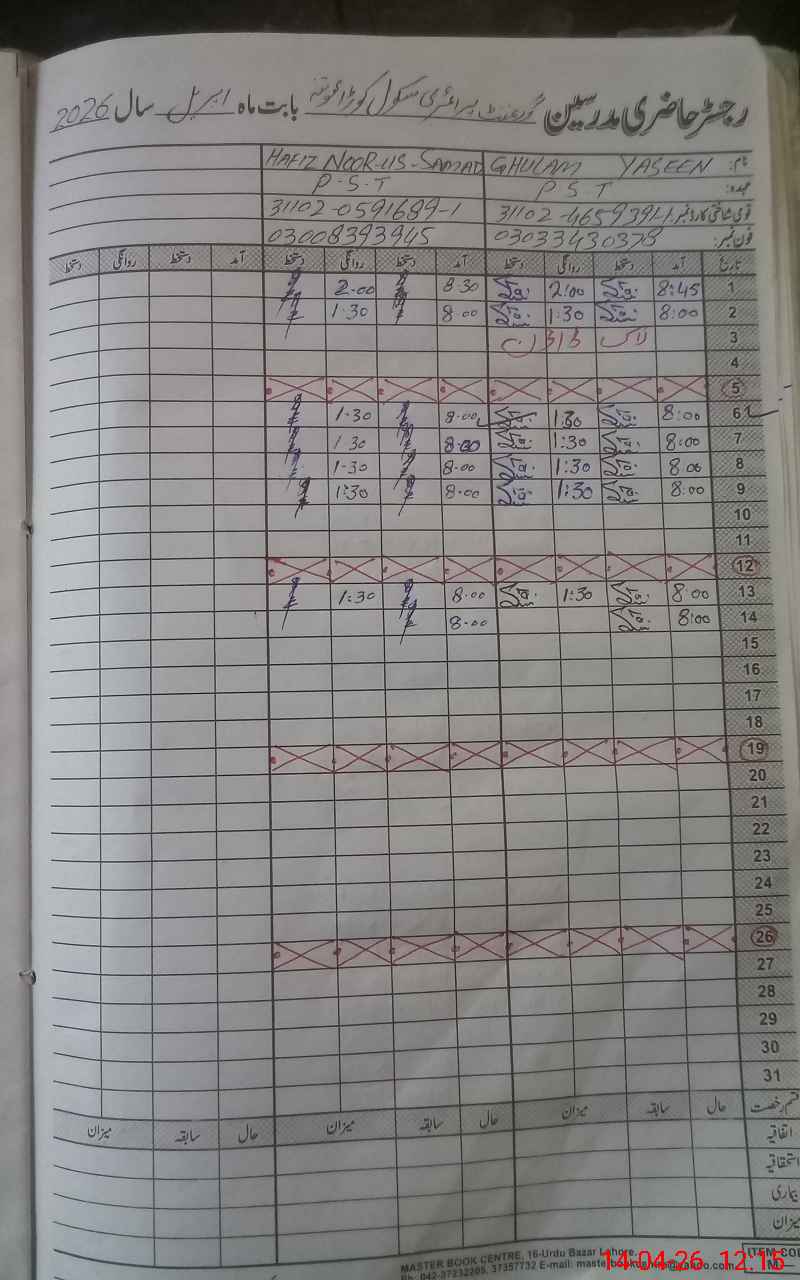 رجسٹر حاضری مدرسین گورنمنٹ پرائمری سکول بابت ماہ اپریل سال 2026
نام: GHULAM YASEEN HAFIZ NOOR-US-SAMAD
عہدہ: P S T P.S.T
قومی شناختی کارڈ نمبر 31102-0591689-1
فون نمبر: 03033430378 03008393945
تاریخ آمد دستخط روانگی دستخط آمد دستخط روانگی دستخط آمد دستخط روانگی دستخط
1 8:45 2:00 8.30 2.00
2 8:00 1.30 8.00 1.30
3 لاک ڈاؤن
4
5
6 8:00 1.30 8.00 1.30
7 8:00 1:30 8.00 1.30
8 8:00 1:30 8.00 1.30
9 8:00 1:30 8.00 1:30
10
11
12
13 8:00 1:30 8.00 1:30
14 8:00 8.00
15
16
17
18
19
20
21
22
23
24
25
26
27
28
29
30
31
قسم رخصت حال سابقہ میزان حال سابقہ میزان حال سابقہ میزان
اتفاقیہ
استحقاقیہ
بیماری
میزان
MASTER BOOK CENTRE, 16-Urdu Bazar Lahore.
Ph: 042-37232205, 37357732 E-mail:
14.04.26 12:15